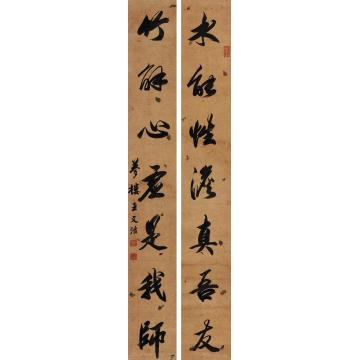 水能性澹真吾友
竹解心虛是我師
夢樓王文治